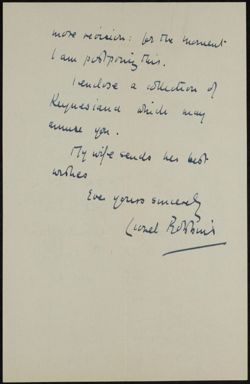 more revision: for the moment
I am postponing this.
I enclose a collection of
Keynesiana which may
amuse you.
My wife sends her best
wishes
Ever yours sincerely
Lionel Robbins